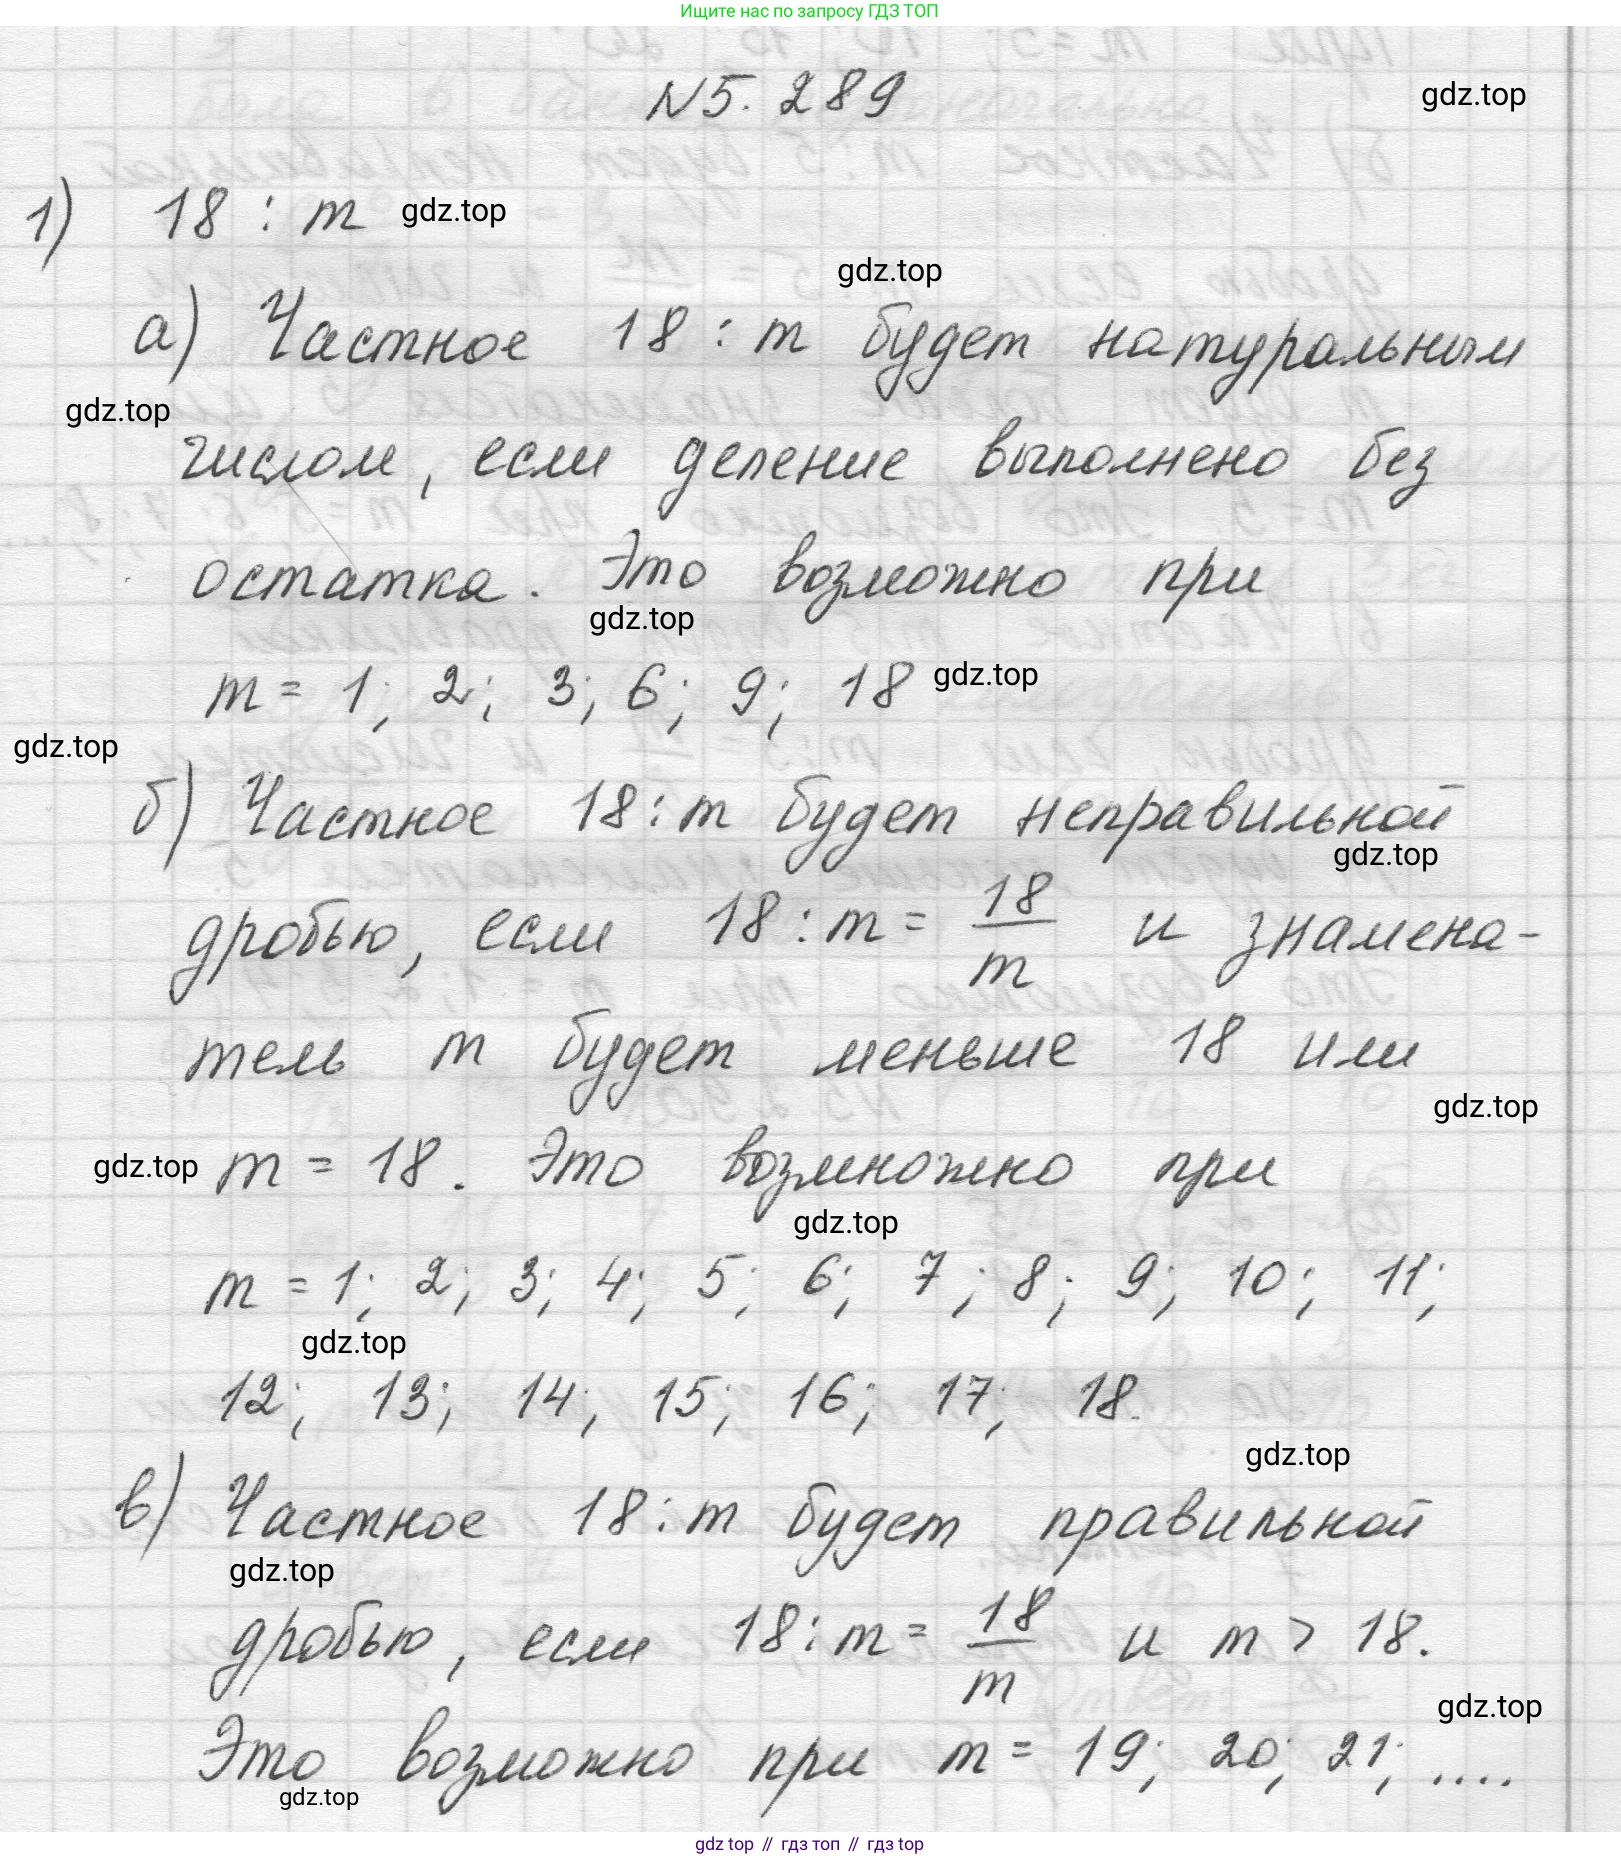 Ищите нас по запросу ГДЗ ТОП
N5.289
gdz.top
1) 18 : m gdz.top
gdz.top
а) Частное 18 : m будет натуральным
gdz.top
числом, если деление выполнено без
остатка. Это возможно при
gdz.top
m = 1; 2; 3; 6; 9; 18 gdz.top
gdz.top
б) Частное 18 : m будет неправильной
gdz.top
дробью, если 18 : m = 18/m и знамена-
тель m будет меньше 18 или
gdz.top
gdz.top m = 18. Это возмножно при
gdz.top
m = 1; 2; 3; 4; 5; 6; 7; 8; 9; 10; 11;
gdz.top
12; 13; 14; 15; 16; 17; 18.
gdz.top
в) Частное 18 : m будет правильной
gdz.top
дробью, если 18 : m = 18/m и m > 18.
gdz.top
Это возможно при m = 19; 20; 21; ....
gdz.top
gdz top // гдз топ // гдз top